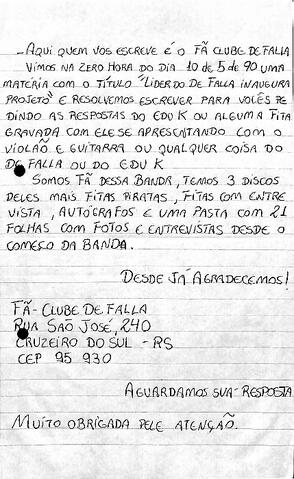 - AQUI QUEM VOS ESCREVE É O FÃ CLUBE DE FALLA
VIMOS NA ZERO HORA DO DIA 10 de 5 de 90 UMA
MATÉRIA COM O TÍTULO "LIDER DO DE FALLA INAUGURA
PROJETO" E RESOLVEMOS ESCREVER PARA VOCÊS PE
DINDO AS RESPOSTAS DO EDU K OU ALGUMA FITA
GRAVADA COM ELE SE APRESENTANDO COM O
VIOLÃO E GUITARRA OU QUALQUER COISA DO
DE FALLA OU DO EDU K
SOMOS FÃ DESSA BANDA, TEMOS 3 DISCOS
DELES MAIS FITAS PIRATAS, FITAS COM ENTRE
VISTA, AUTÓGRAFOS E UMA PASTA COM 21
FOLHAS COM FOTOS E ENTREVISTAS DESDE O
COMEÇO DA BANDA.
DESDE JÁ AGRADECEMOS!
FÃ-CLUBE DE FALLA
RUA SÃO JOSÉ, 240
CRUZEIRO DO SUL - RS
CEP 95 930
AGUARDAMOS SUA RESPOSTA
MUITO OBRIGADA PELE ATENÇÃO.